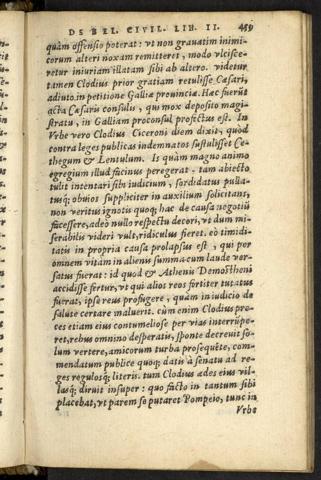 DE BEL. CIVIL. LIB. II. 459
quàm offensio poterat: vt non grauatim inimi-
corum alteri noxam remitteret, modo vlcisce-
retur iniuriam illatam sibi ab altero. videtur
tamen Clodius prior gratiam retulisse Cæsari,
adiuto in petitione Galliæ prouinciæ. Hæc fuerũt
acta Cæsaris consulis, qui mox deposito magi-
stratu, in Galliam proconsul profectus est. In
Vrbe vero Clodius Ciceroni diem dixit, quòd
contra leges publicas indemnatos sustulisset Ce-
thegum & Lentulum. Is quàm magno animo
egregium illud facinus peregerat, tam abiecto
tulit intentari sibi iudicium, sordidatus pulla-
tusq; obuios suppliciter in auxilium solicitans,
non veritus ignotis quoq; hac de causa negotiũ
facessere, adeò nullo respectu decori, vt dum mi-
serabilis videri vult, ridiculus fieret. eò timidi-
tatis in propria causa prolapsus est, qui per
omnem vitam in alienis summa cum laude ver-
satus fuerat: id quod & Athenis Demostheni
accidisse fertur, vt qui alios reos fortiter tutatus
fuerat, ipse reus profugere, quàm in iudicio de
salute certare maluerit. cùm enim Clodius pre-
ces etiam eius contumeliose per vias interrũpe-
ret, rebus omnino desperatis, sponte decreuit so-
lum vertere, amicorum turba prosequẽte, com-
mendatum publice quoq; datis à senatu ad re-
ges regulosq; literis. tum Clodius ædes eius vil-
lasq; diruit insuper: quo facto in tantum sibi
placebat, vt parem se putaret Pompeio, tunc in
Vrbe